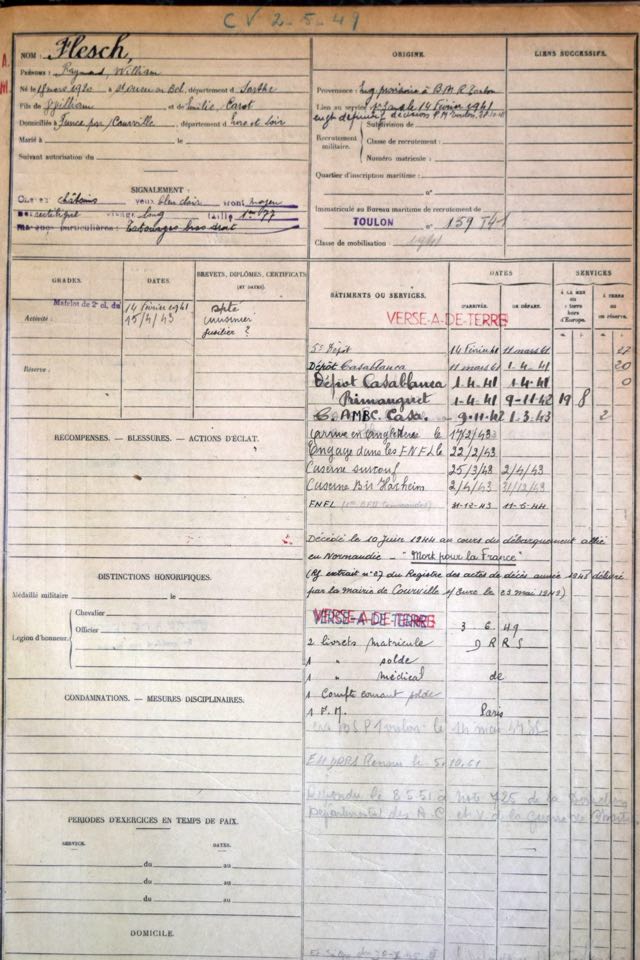 CV 2-5-49
NOM : Flesch,
Prénoms : Raymond, William
Né le 18 mars 1920 à St Ouen en Bel, département d Sarthe
Fils de William et de Emilie, Carot
Domiciliés à Fance par Courville, département d Eure et Loir
Marié à le
Suivant autorisation du
SIGNALEMENT :
Cheveux châtains yeux bleu clair front moyen
Nez rectiligne visage long taille 1m 77
Marques particulières : Tatouages bras droit
ORIGINE.
Provenance : Eng provisoire à B.M.R Toulon
Lien au service 14 Février 1941
Recrutement militaire.
Subdivision de
Classe de recrutement :
Numéro matricule :
Quartier d'inscription maritime :
n°
Immatriculé au Bureau maritime de recrutement de
TOULON n° 159 T41
Classe de mobilisation 1941
LIENS SUCCESSIFS.
GRADES. DATES. BREVETS, DIPLÔMES, CERTIFICATS (ET DATES).
Activité : Matelot de 2e cl. du 14 Février 1941 apte
15/4/43 cuisinier
fusilier ?
Réserve :
RÉCOMPENSES. — BLESSURES. — ACTIONS D'ÉCLAT.
DISTINCTIONS HONORIFIQUES.
Médaillé militaire le
Légion d'honneur.
Chevalier
Officier
CONDAMNATIONS. — MESURES DISCIPLINAIRES.
PÉRIODES D'EXERCICES EN TEMPS DE PAIX.
SERVICE. DATES.
du au
du au
du au
DOMICILE.
BÂTIMENTS OU SERVICES. DATES SERVICES
D'ARRIVÉE. DE DÉPART. À LA MER ou à terre hors d'Europe. À TERRE ou en réserve.
VERSE-A-DE-TERRE
5e Dépôt 14 Février 41 11 mars 41 27
Dépôt Casablanca 11 mars 41 1-4-41 20
Dépôt Casablanca 1-4-41 1-4-41 0
Primauguet 1-4-41 9-11-42 19 8
C. AMBC. Casa. 9-11-42 1-3-43 2
arrivé en Angleterre le 17/2/43
Engagé dans les F.N.F.L le 22/2/43
Caserne Surcouf 25/3/43 2/4/43
Caserne Bir Hacheim 2/4/43 31/12/43
FNFL (1er BFM Commandos) 31-12-43 11-6-44
Décédé le 10 Juin 1944 au cours du débarquement allié
en Normandie - "Mort pour la France"
(Rf extrait n° 27 du Registre des actes de décès année 1948 délivré
par la mairie de Courville s/Eure le 23 mai 1949)
VERSE-A-DE-TERRE
3 6.49
2 livrets matricule DRRS
1 " solde
1 " médical de
1 Compte courant solde
1 F.M. Paris
Répondu le 8 5 51 à note 725 de la
Départemental des A C et V de la guerre